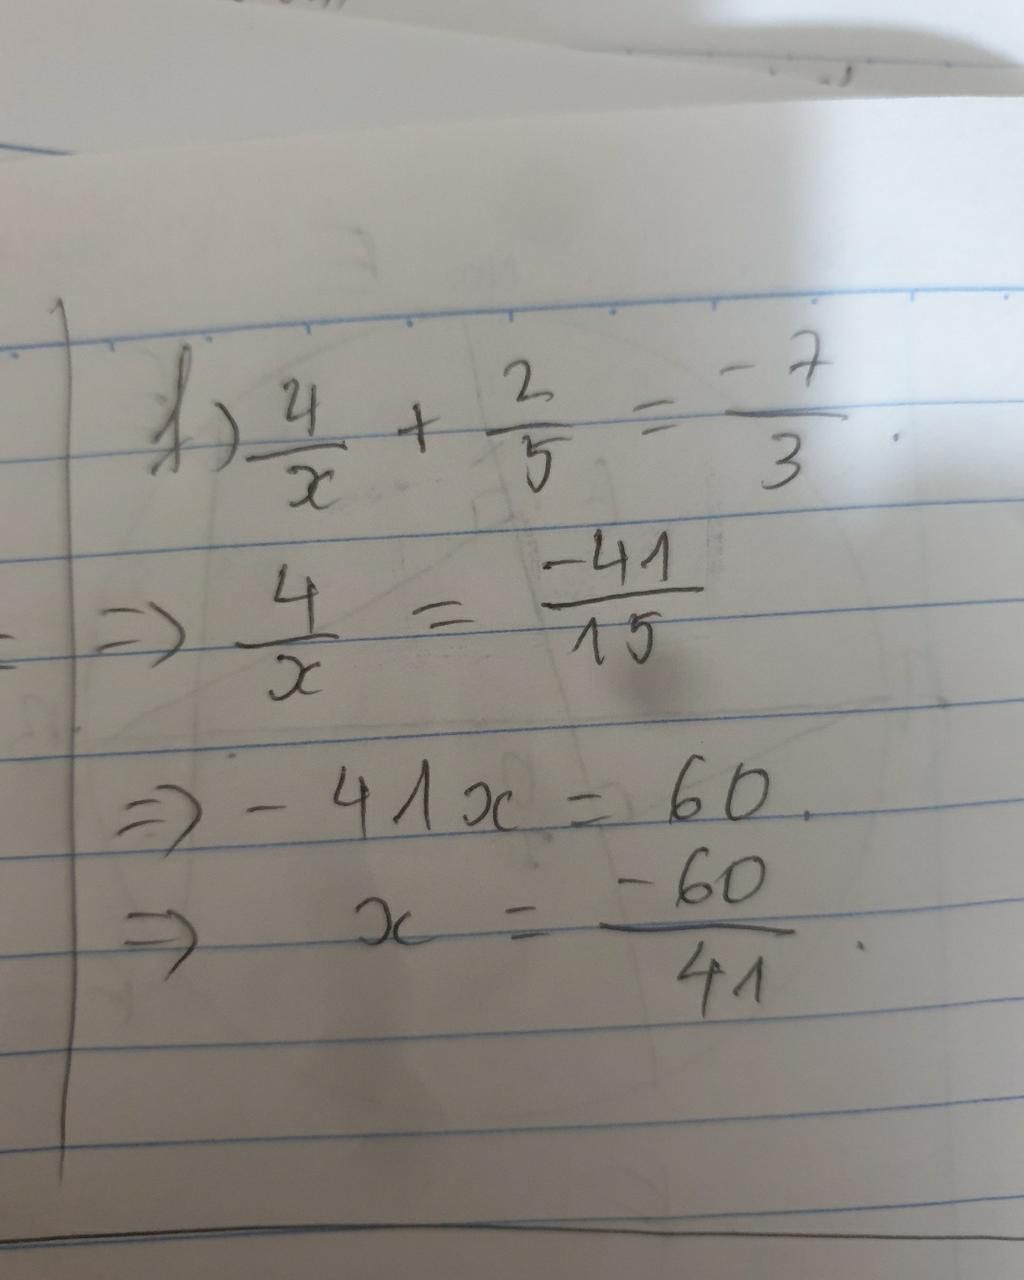 f) 4/x + 2/5 = -7/3 .
=> 4/x = -41/15
=> - 41x = 60 .
=> x = -60/41 .